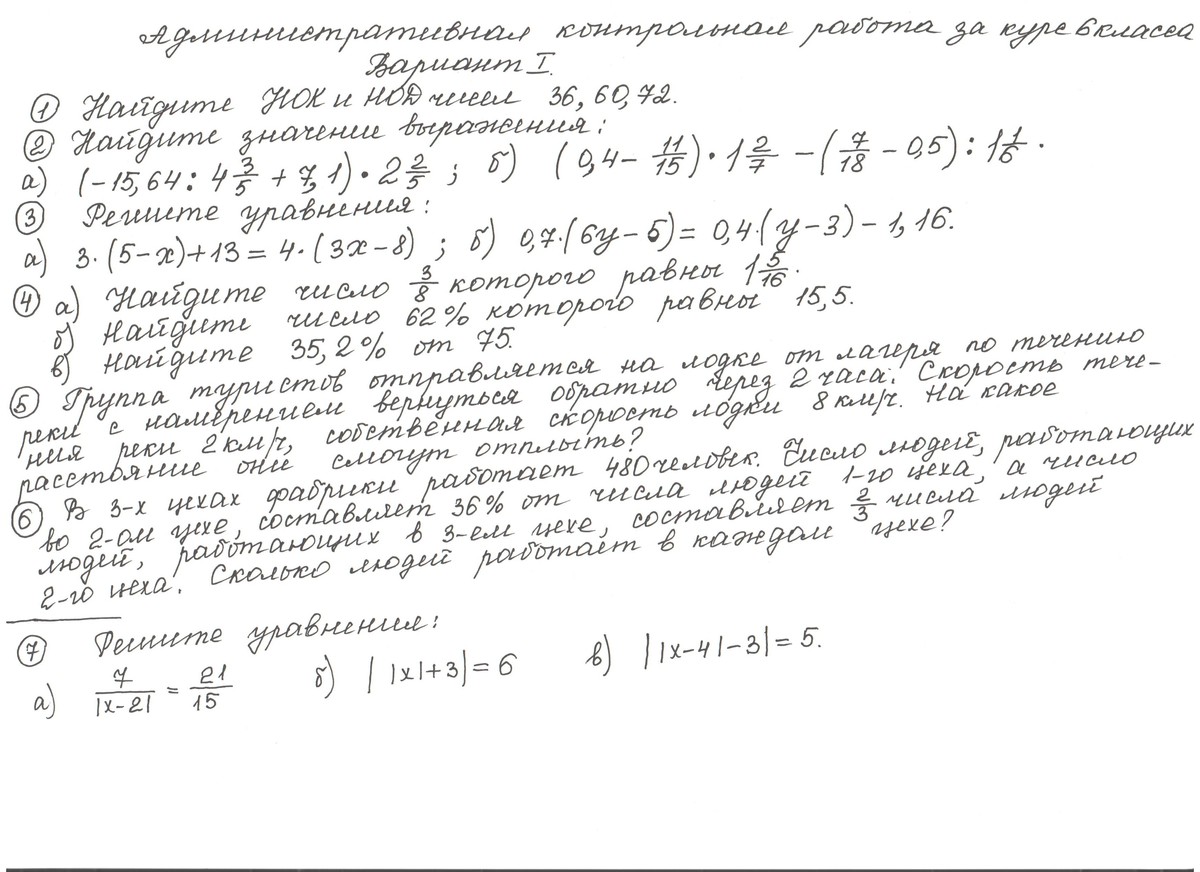 Административная контрольная работа за курс 6 класса
Вариант I.
① Найдите НОК и НОД чисел 36, 60, 72.
② Найдите значение выражения:
а) (-15,64 : 4 3/5 + 7,1) · 2 2/5 ; б) (0,4 - 11/15) · 1 2/7 - (7/18 - 0,5) : 1 1/6 .
③ Решите уравнения:
а) 3·(5-x)+13 = 4·(3x-8) ; б) 0,7·(6y-5) = 0,4·(y-3) - 1,16.
④ а) Найдите число 3/8 которого равны 1 5/16.
б) Найдите число 62% которого равны 15,5.
в) Найдите 35,2% от 75.
⑤ Группа туристов отправляется на лодке от лагеря по течению
реки с намерением вернуться обратно через 2 часа. Скорость тече-
ния реки 2 км/ч, собственная скорость лодки 8 км/ч. На какое
расстояние они смогут отплыть?
⑥ В 3-х цехах фабрики работает 480 человек. Число людей, работающих
во 2-ом цехе, составляет 36% от числа людей 1-го цеха, а число
людей, работающих в 3-ем цехе, составляет 2/3 числа людей
2-го цеха. Сколько людей работает в каждом цехе?
⑦ Решите уравнения:
а) 7/|x-2| = 21/15 б) | |x|+3| = 6 в) | |x-4|-3| = 5.